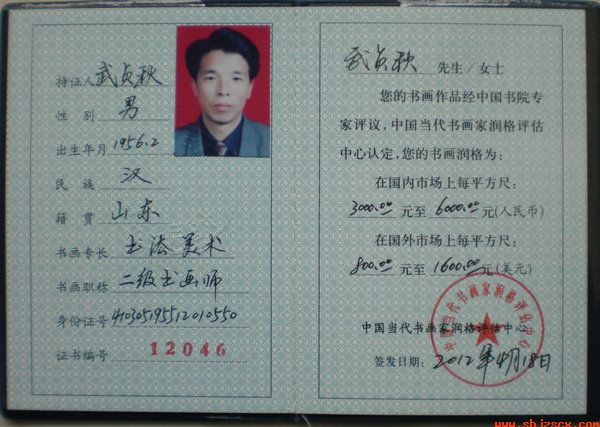 持证人 武贞秋
性别 男
出生年月 1956.2
民族 汉
籍贯 山东
书画专长 书法美术
书画职称 二级书画师
身份证号 410305195512010550
证书编号 12046
武贞秋 先生/女士
您的书画作品经中国书院专
家评议,中国当代书画家润格评估
中心认定,您的书画润格为:
在国内市场上每平方尺:
3000.00 元至 6000.00 元(人民币)
在国外市场上每平方尺:
800.00 元至 1600.00 元(美元)
中国当代书画家润格评估中心
签发日期: 2012年4月18日
中国当代书画家润格评估中心
www.shizscx.com